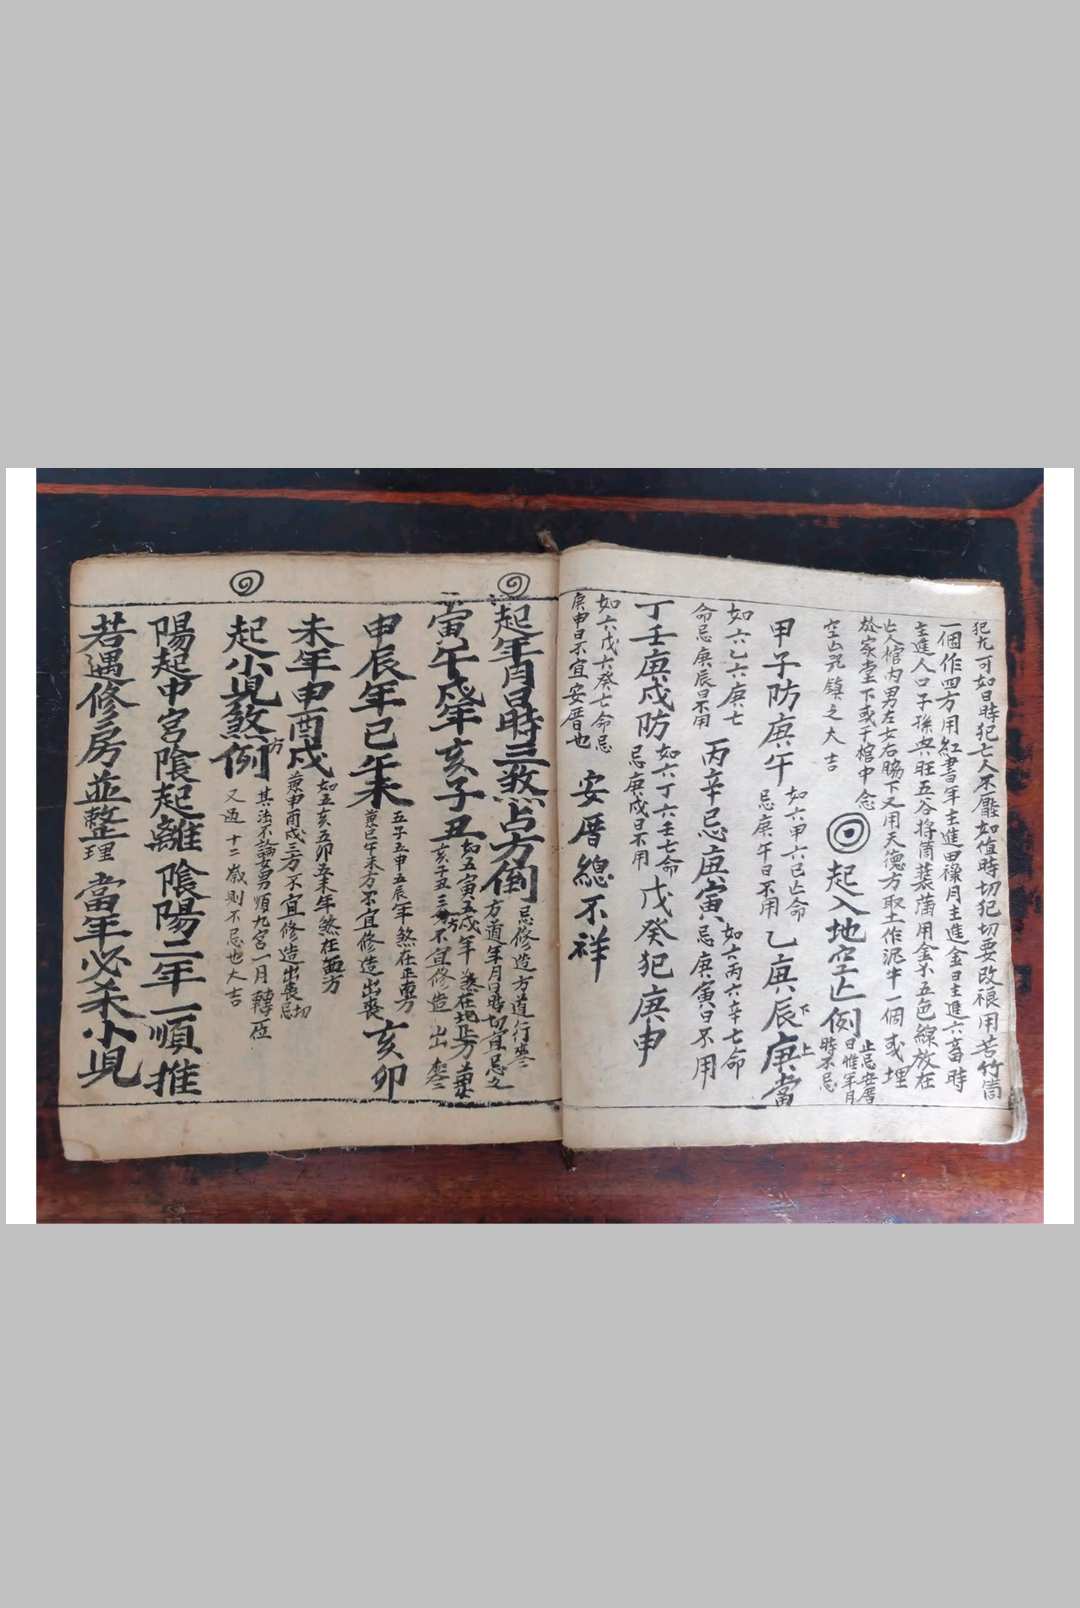 犯尤可如日時犯亡人不壓如值時切犯切要改禄用苦竹筒
一個作四方用紅書年主進田禄月主進金日主進六畜時
主進人口子孫興旺五谷将筒蓋蒲用金不五色線放在
亡人棺内男左女右腸下又用天德方取土作泥牛一個或埋
於家堂下或于棺中念
空亡咒鎮之大吉
起入地空亡例
止忌安厝
日惟年月
時不忌
甲子防庚午
如六甲六己亡命
忌庚午日不用
乙庚辰庚當
下上
如六乙六庚七
命忌庚辰日不用
丙辛忌庚寅
如六丙六辛七命
忌庚寅日不用
丁壬庚戌防
如六丁六壬七命
忌庚戌日不用
戊癸犯庚申
如六戊六癸七命忌
庚申日不宜安厝也
安厝總不祥
起年月日時三煞占方例
忌修造方道行喪
方適年月日時切宜忌之
寅午戌年亥子丑
如五寅五戌年煞在北正方兼
亥子丑三方不宜修造出喪
申辰年巳午未
五子五申五辰年煞在正南方
兼巳午未方不宜修造出喪
亥卯
未年申酉戌
方
如五亥五卯五未年煞在西方
兼申酉戌三方不宜修造出喪切忌
起小児煞例
其法不論女男順九宮一月轉一位
又過十二歲則不忌也大吉
陽起中宮陰起離陰陽二年一順推
若遇修房並整理當年必杀小児